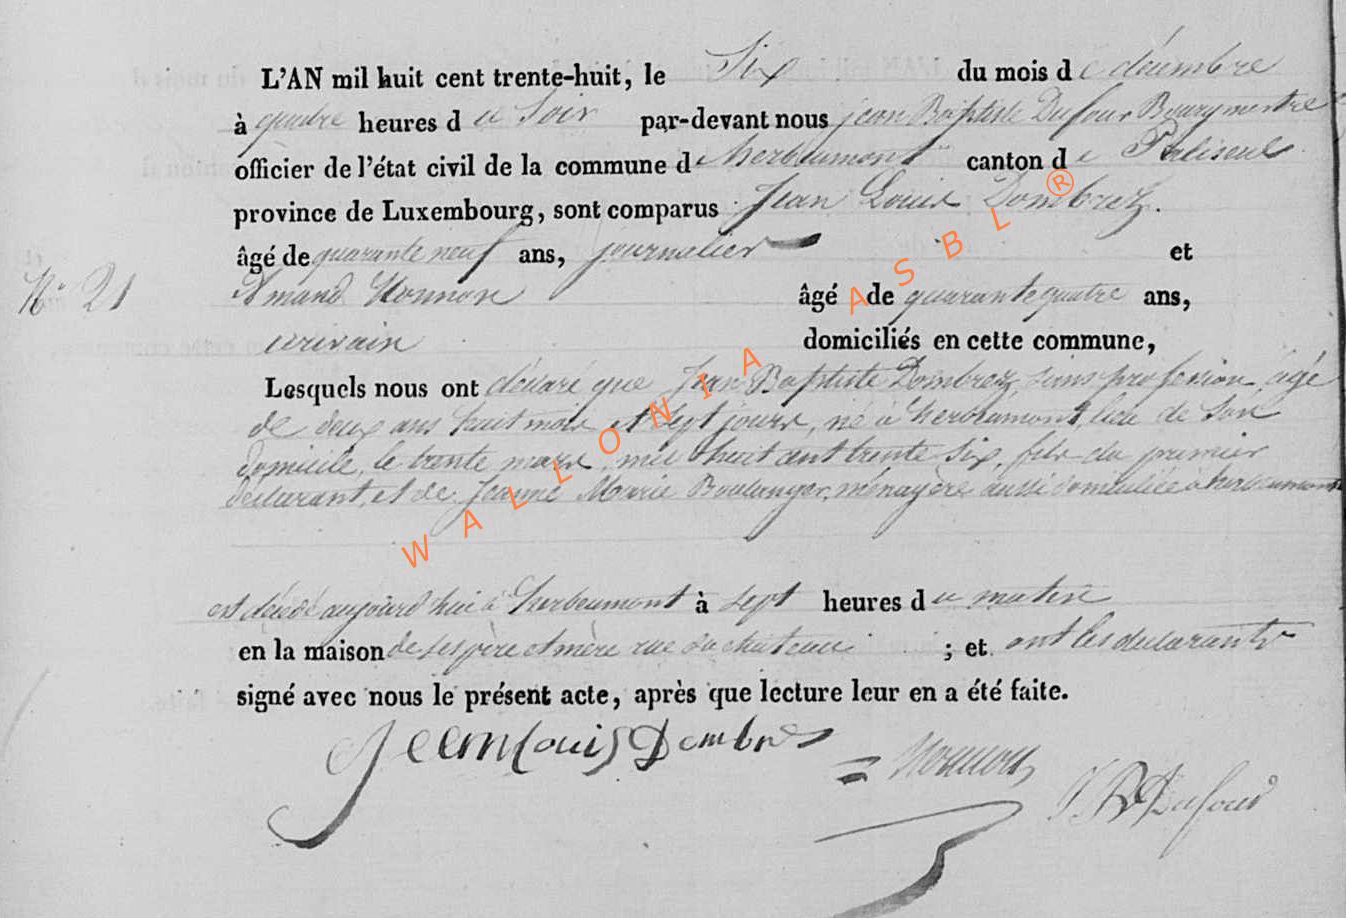 L'AN mil huit cent trente-huit, le Six du mois de décembre
à quatre heures du Soir par-devant nous jean Baptiste Dufour Bourgmestre
officier de l'état civil de la commune d'herbeumont canton de Paliseul
province de Luxembourg, sont comparus Jean Louis Dombret.
âgé de quarante neuf ans, journalier et
N° 21 Amand Monnon âgé de quarante quatre ans,
écrivain domiciliés en cette commune,
Lesquels nous ont déclaré que Jean Baptiste Dombrez, sans profession, âgé
de deux ans huit mois et sept jours, né à herbeumont, lieu de son
domicile, le trente mars, mil huit cent trente six, fils du premier
déclarant, et de Jeanne Marie Boulanger, ménagère aussi domiciliée à herbeumont
est décédé aujourd'hui à herbeumont à sept heures du matin
en la maison de ses père et mère rue du chateau ; et ont les déclarants
signé avec nous le présent acte, après que lecture leur en a été faite.
Jean Louis Dombres
Monnon
J B Dufour
WALLONIA ASBL ®